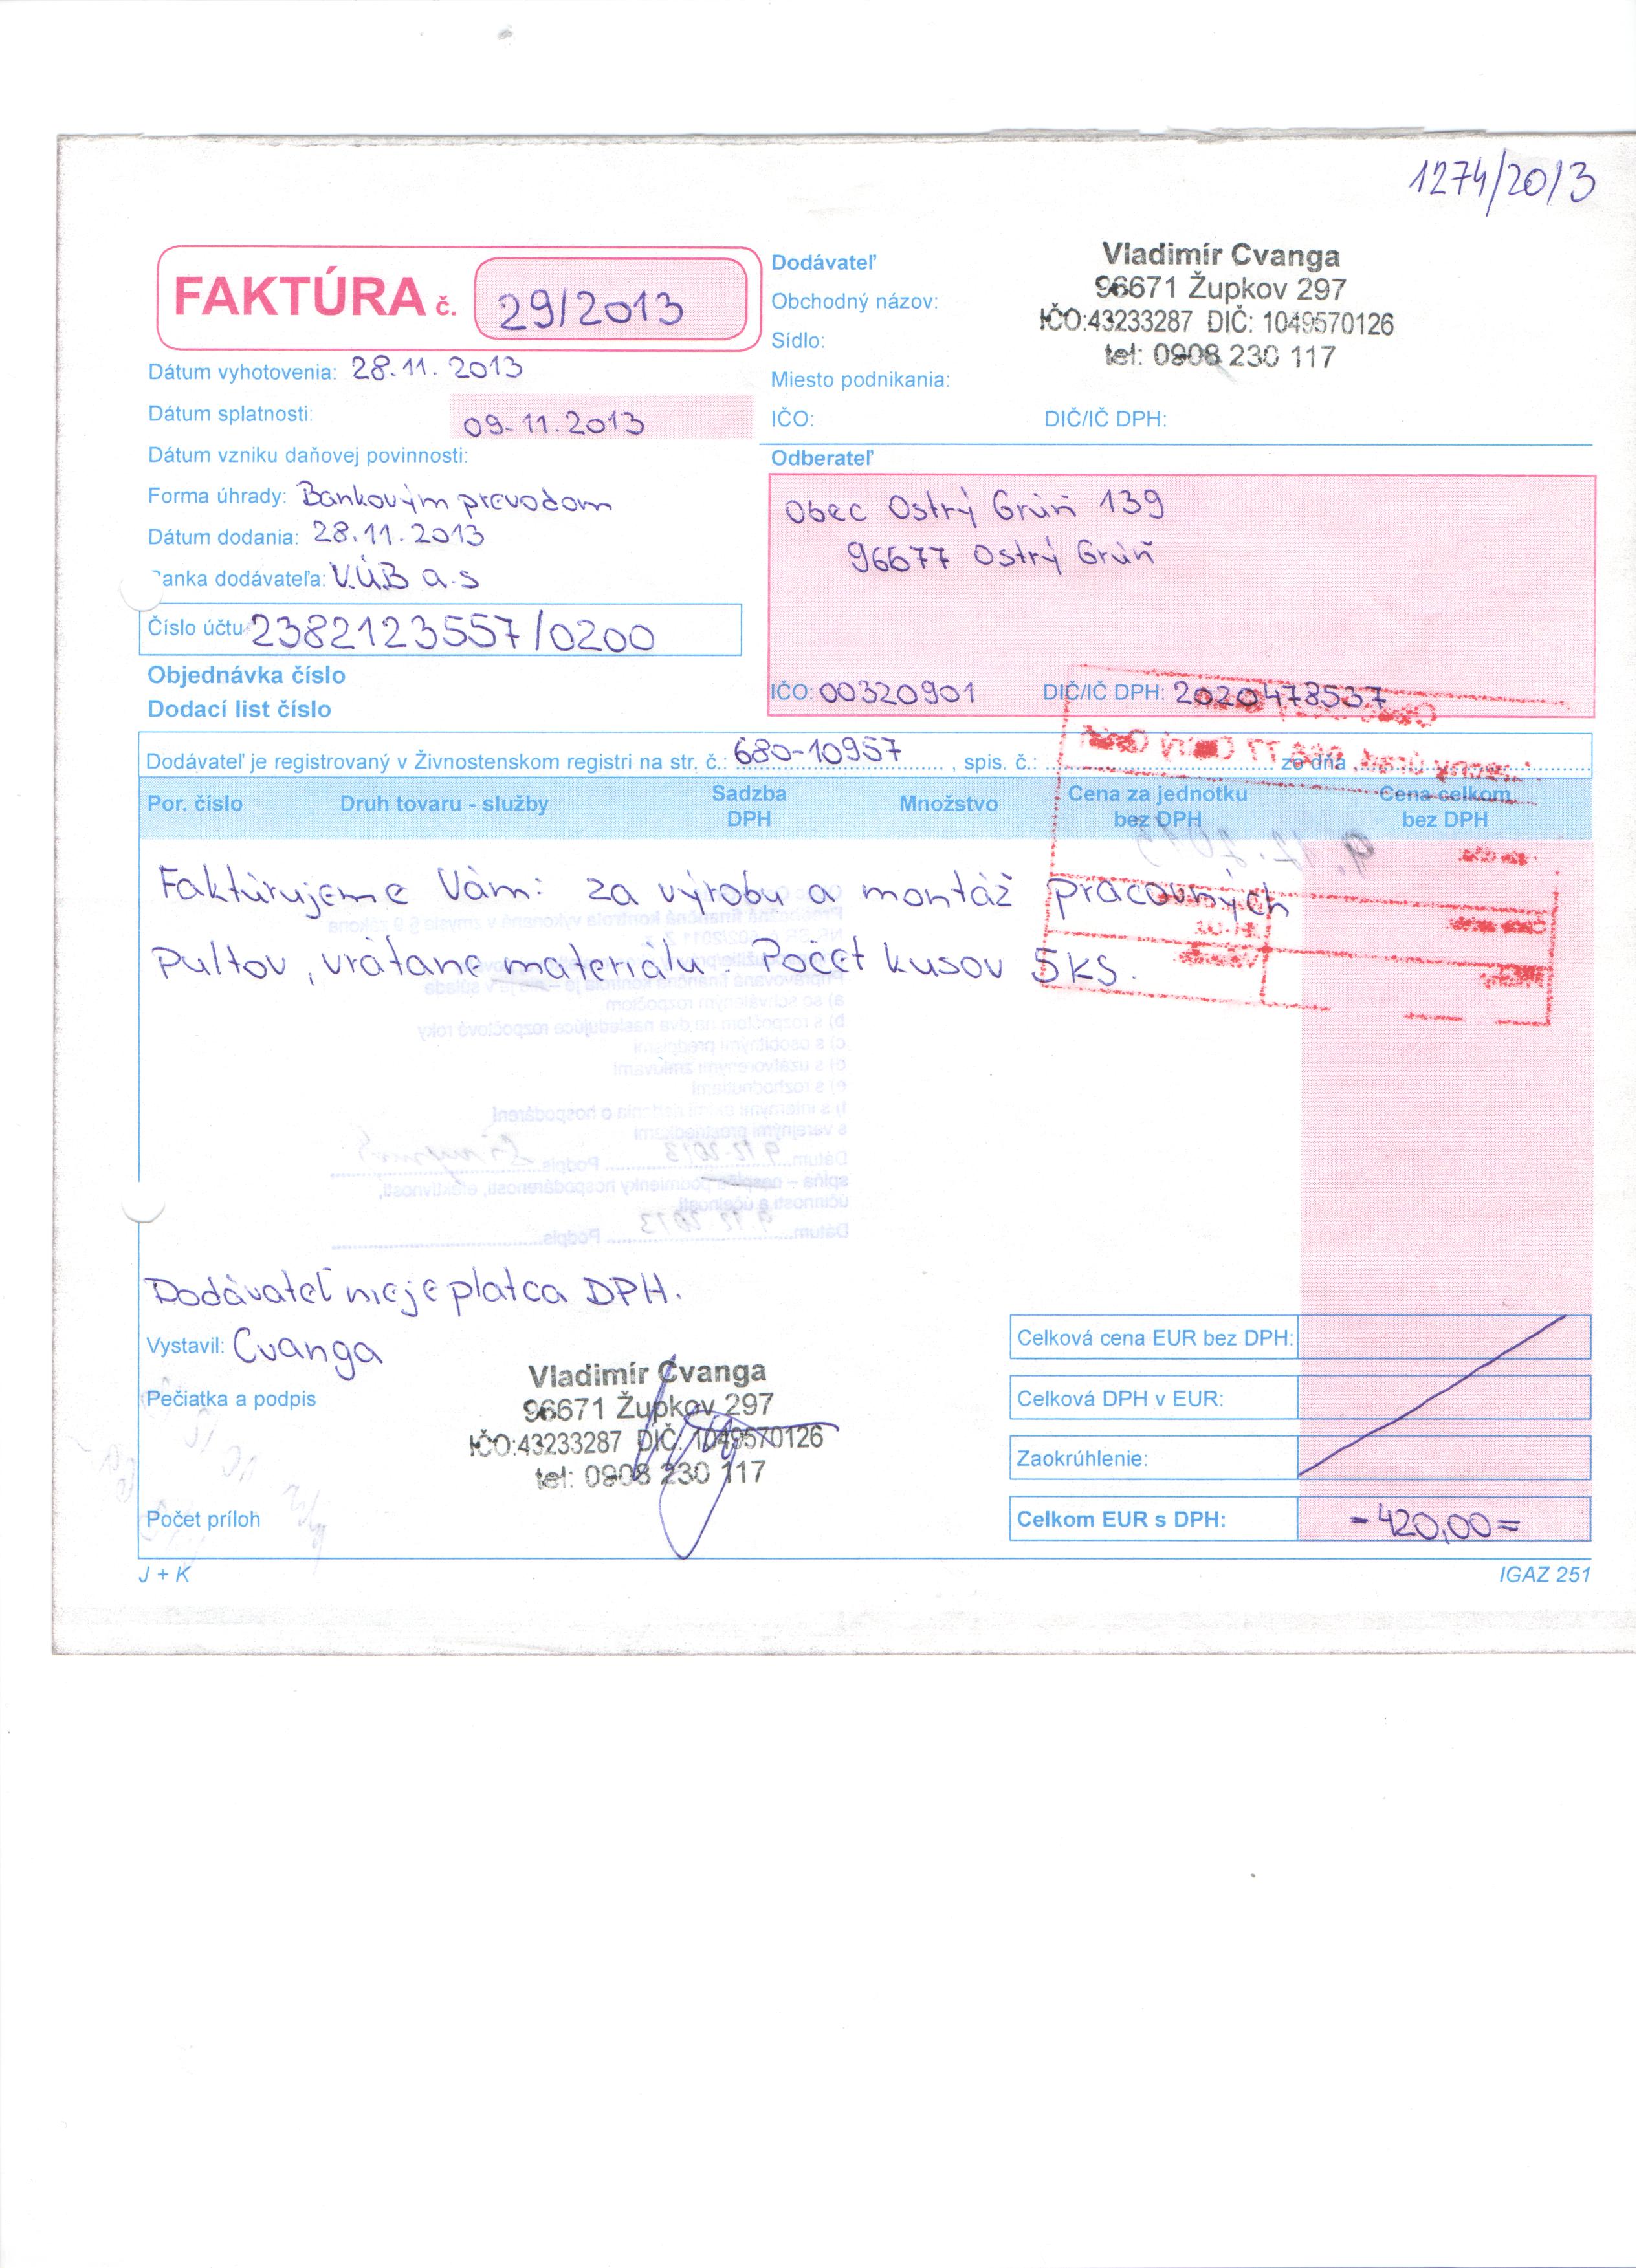 1274/2013
FAKTÚRA č. 29/2013
Dátum vyhotovenia: 28.11.2013
Dátum splatnosti: 09.11.2013
Dátum vzniku daňovej povinnosti:
Forma úhrady: Bankovým prevodom
Dátum dodania: 28.11.2013
Banka dodávateľa: V.Ú.B a.s
Číslo účtu 2382123557/0200
Objednávka číslo
Dodací list číslo
Dodávateľ
Obchodný názov:
Sídlo:
Miesto podnikania:
IČO: DIČ/IČ DPH:
Vladimír Cvanga
96671 Župkov 297
IČO:43233287 DIČ: 1049570126
tel: 0908 230 117
Odberateľ
Obec Ostrý Grúň 139
96677 Ostrý Grúň
IČO: 00320901 DIČ/IČ DPH: 2020478537
Dodávateľ je registrovaný v Živnostenskom registri na str. č.: 680-10957, spis. č.: zo dňa
Por. číslo Druh tovaru - služby Sadzba DPH Množstvo Cena za jednotku bez DPH Cena celkom bez DPH
Faktúrujeme Vám: za výrobu a montáž pracovných
Pultov, vrátane materiálu. Počet kusov 5ks.
Dodávateľ nieje platca DPH.
Vystavil: Cvanga
Pečiatka a podpis
Vladimír Cvanga
96671 Župkov 297
IČO:43233287 DIČ: 1049570126
tel: 0908 230 117
Počet príloh
Celková cena EUR bez DPH:
Celková DPH v EUR:
Zaokrúhlenie:
Celkom EUR s DPH: -420,00=
J + K
IGAZ 251